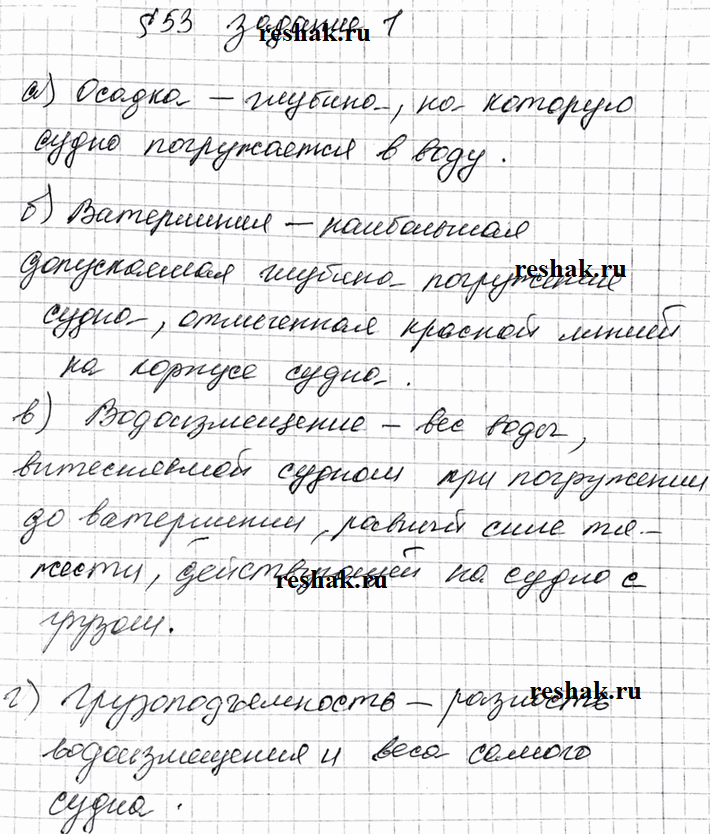 §53 задание 1
reshak.ru
а) Осадка – глубина, на которую
судно погружается в воду.
б) Ватерлиния – наибольшая
допускаемая глубина погружение
reshak.ru
судна, отмеченная красной линией
на корпусе судна.
в) Водоизмещение – вес воды,
вытесняемой судном при погружении
до ватерлинии, равный силе тя-
жести, действующей на судно с
reshak.ru
грузом.
г) Грузоподъемность – разность
reshak.ru
водоизмещения и веса самого
судна.